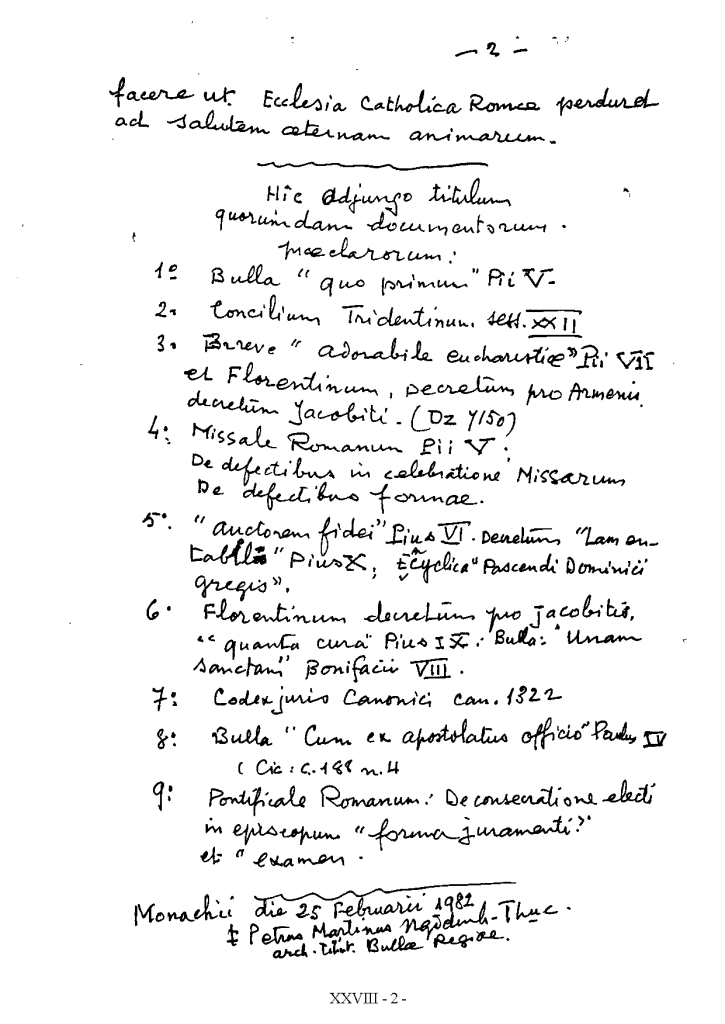 - 2 -
facere ut Ecclesia Catholica Romae perduret
ad salutem aeternam animarum.
Hic adjungo titulum
quorumdam documentorum.
praeclarorum:
1º Bulla "quo primum" Pii V-
2º Concilium Tridentinum. sess. XXII
3º Breve "adorabile eucharistiae" Pii VII
et Florentinum, Decretum pro Armenis,
decretum Jacobiti. (Dz 7150)
4º: Missale Romanum Pii V:
De defectibus in celebratione Missarum
De defectibus formae.
5º: "auctorem fidei" Pius VI. Decretum "Lamen-
tabili" Pius X, Ecyclica "Pascendi Dominici
gregis".
6º Florentinum decretum pro jacobitis,
"quanta cura" Pius IX. Bulla: "Unam
sanctam" Bonifacii VIII.
7º: Codex juris Canonici can. 1322
8º: Bulla "Cum ex apostolatus officio" Paulus IV
(Cic: c. 188 n. 4
9º: Pontificale Romanum: De consecratione electi
in episcopum "forma juramenti"
et "examen.
Monachii die 25 Februarii 1982
‡ Petrus Martinus Ngôdinh-Thuc.
arch. titul. Bullae Regiae.
XXVIII - 2 -